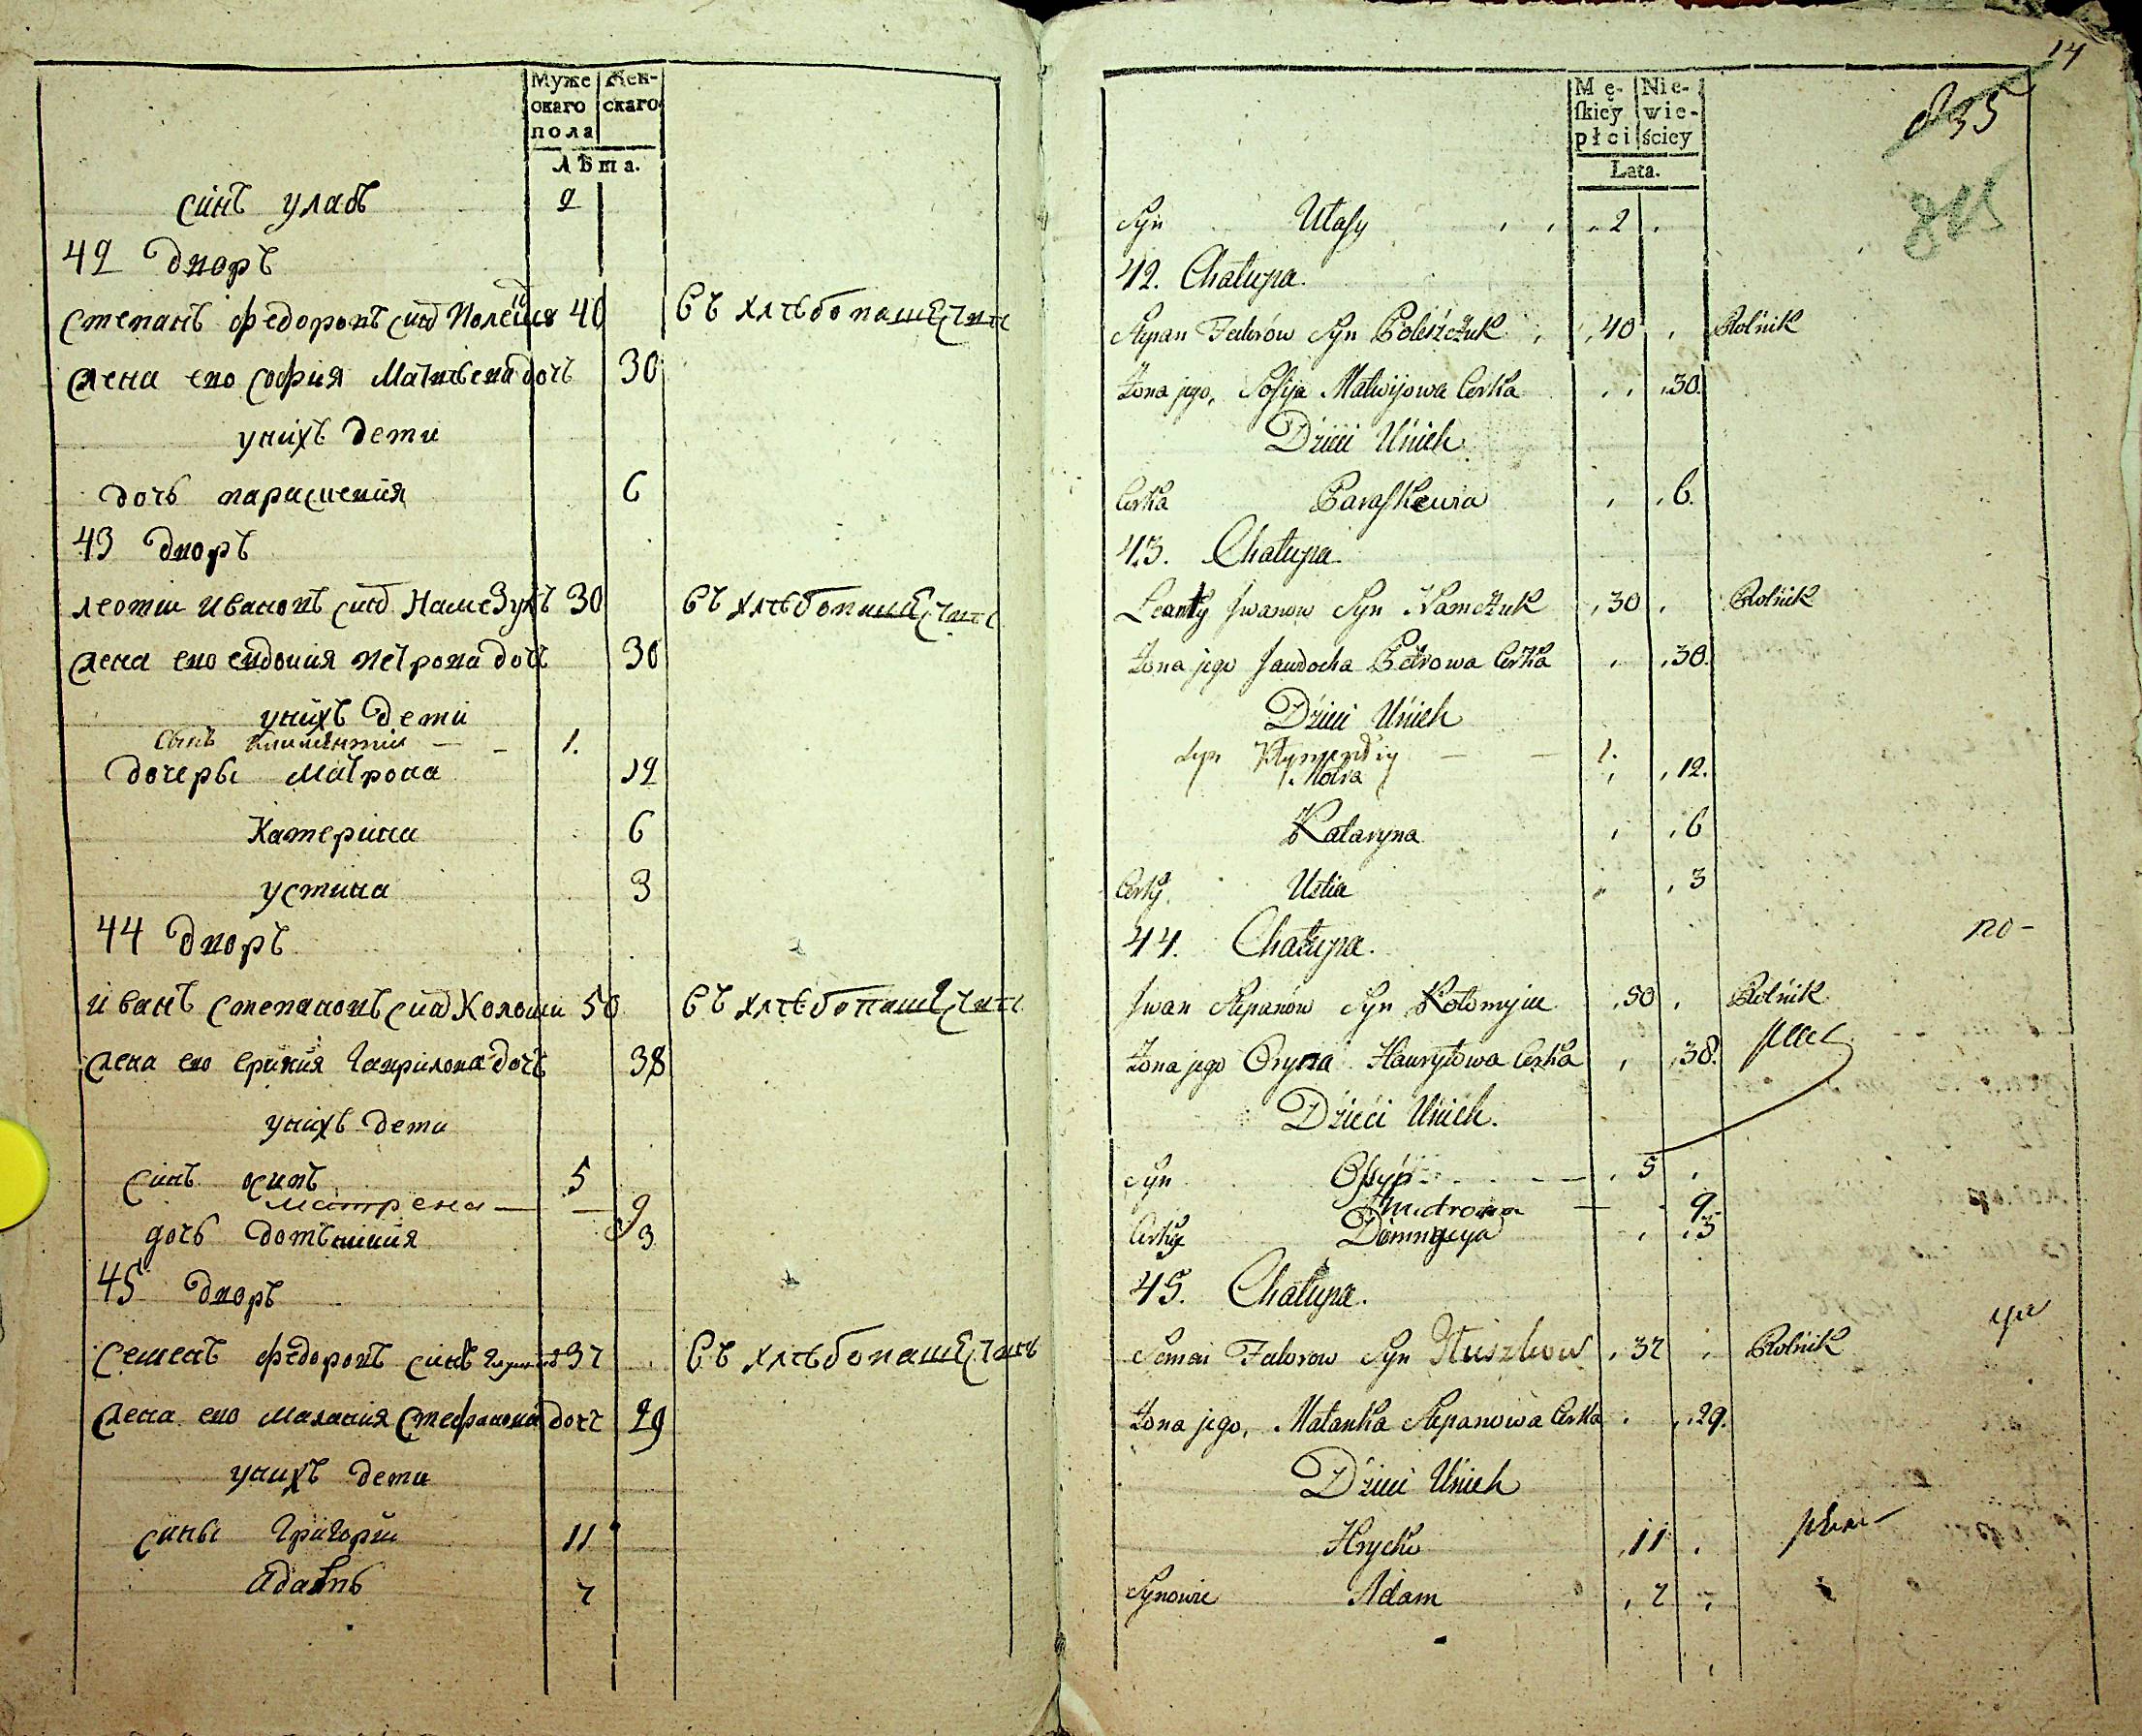 Муже Жен-
скаго скаго
пола
Лѣта.
синъ улаъ 2
42 дворъ
степанъ федоровъ синъ Полещу 40 въ хлебопашествѣ
жена ево софия Матвеева дочъ 30
унихъ дети
дочь парасцевия 6
43 дворъ
леонти ивановъ синъ Намезукъ 30 въ хлебопашествѣ
жена ево евдокия петрова дочъ 30
унихъ дети
сынъ климентии — - 1.
дочеры матрона 12
Катерина 6
устина 3
44 дворъ
иванъ степановъ синъ Коломи 50 въ хлебопашествѣ
жена ево ериния Гаврилова дочъ 38
унихъ дети
синъ осипъ 5
матрена — — 9
дочь домникия 3
45 дворъ
семенъ федоровъ синъ 37 въ хлебопашествѣ
жена ево малания стефанова дочъ 29
унихъ дети
сины Григори 11
адамъ 7
14
835
815
Mę- Nie-
ſkiey wie-
płci ściey
Lata.
Syn Ułaſy 2
42. Chałupa.
Stepan Fedorów Syn Poleszczuk 40 Rolnik
Żona jego, Sofija Matwijowa Cerka 30.
Dzieci Unich
Cerka Paraſkewia 6.
43. Chałupa.
Leonty Jwanow Syn Namczuk 30 Rolnik
Żona jego Jawdocha Petrowa Cerka 30.
Dzieci Unich
Syn Kłymentiy — — 1.
Motra 12.
Kataryna 6
Cerky. Ustia 3
44. Chałupa. no-
Jwan Stepanów Syn Kołomyiec 50 Rolnik
Żona jego Oryna Hawryłowa Cerka 38.
Dzieci Unich.
Syn Oſyp 5
Mudrona — 9
Cerky Domnycya 3
45. Chałupa.
Semen Fedorow Syn Hłuszkow 37 Rolnik
Żona jego, Małanka Stepanowa Cerka 29.
Dzieci Unich
Hryćko 11
Synowie Adam 7